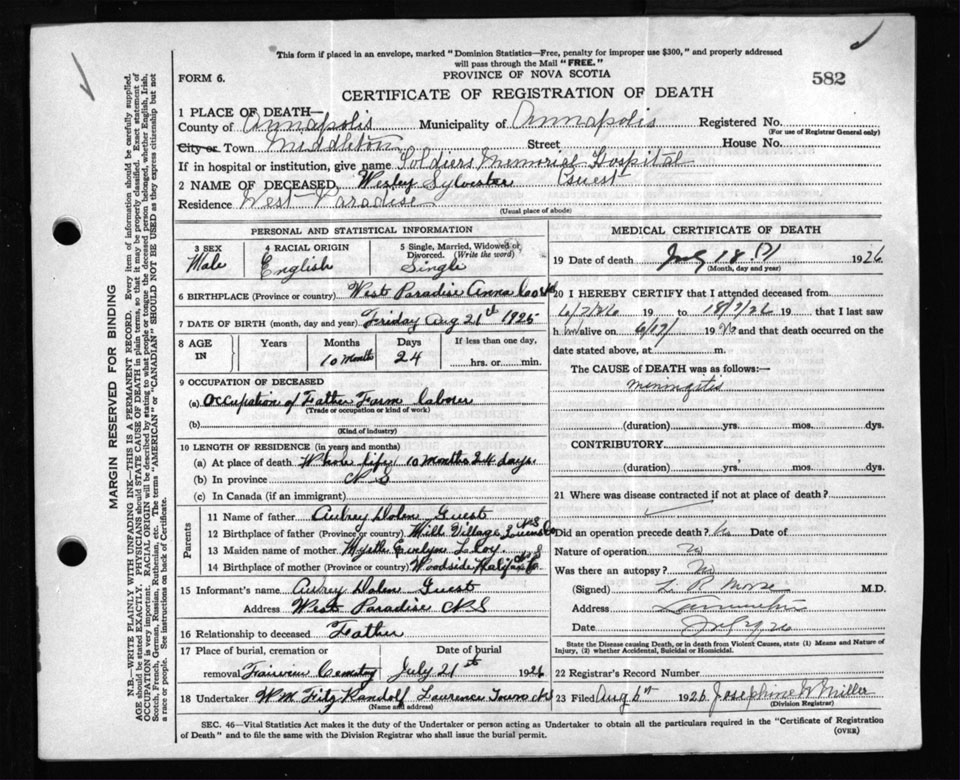 This form if placed in an envelope, marked "Dominion Statistics—Free, penalty for improper use $300," and properly addressed
will pass through the Mail "FREE."
FORM 6.
PROVINCE OF NOVA SCOTIA
582
CERTIFICATE OF REGISTRATION OF DEATH
1 PLACE OF DEATH—
County of Annapolis Municipality of Annapolis Registered No.
(For use of Registrar General only)
City or Town Middleton Street House No.
If in hospital or institution, give name Soldiers Memorial Hospital
2 NAME OF DECEASED, Wesley Sylvester Guest
Residence West Paradise
(Usual place of abode)
PERSONAL AND STATISTICAL INFORMATION
3 SEX 4 RACIAL ORIGIN 5 Single, Married, Widowed or
Divorced. (Write the word)
Male English Single
6 BIRTHPLACE (Province or country) West Paradise Anna Co NS
7 DATE OF BIRTH (month, day and year) Friday Aug 21st 1925
8 AGE IN Years Months Days If less than one day,
10 months 24 hrs. or min.
9 OCCUPATION OF DECEASED
(a) Occupation of Father Farm laborer
(Trade or occupation or kind of work)
(b)
(Kind of industry)
10 LENGTH OF RESIDENCE (in years and months)
(a) At place of death Whole life 10 months 24 days
(b) In province NS
(c) In Canada (if an immigrant)
Parents
11 Name of father Aubrey Dolen Guest
12 Birthplace of father (Province or country) Mill Village Queens Co NS
13 Maiden name of mother Evelyn
14 Birthplace of mother (Province or country) Woodside Halifax Co NS
15 Informant's name Aubrey Dolen Guest
Address West Paradise NS
16 Relationship to deceased Father
17 Place of burial, cremation or Date of burial
removal Fairview Cemetry July 21st 1926
18 Undertaker W M Fitz Randolf Lawrence Town NS
(Name and address)
MEDICAL CERTIFICATE OF DEATH
19 Date of death July 18 1926
(Month, day and year)
20 I HEREBY CERTIFY that I attended deceased from
19 to 18/7/26 19 that I last saw
h m alive on 19 and that death occurred on
date stated above, at m.
The CAUSE of DEATH was as follows:—
Meningitis
(duration) yrs. mos. dys.
CONTRIBUTORY
(duration) yrs. mos. dys.
21 Where was disease contracted if not at place of death?
Did an operation precede death? No Date of
Nature of operation No
Was there an autopsy? No
(Signed) L R Morse M.D.
Address Lawrencetown
Date
State the Disease causing Death, or in death from Violent Causes, state (1) Means and Nature of
Injury, (2) whether Accidental, Suicidal or Homicidal.
22 Registrar's Record Number
23 Filed Aug 6th 1926 Josephine W Miller
(Division Registrar)
SEC. 46—Vital Statistics Act makes it the duty of the Undertaker or person acting as Undertaker to obtain all the particulars required in the "Certificate of Registration
of Death" and to file the same with the Division Registrar who shall issue the burial permit.
(OVER)
MARGIN RESERVED FOR BINDING
N.B.—WRITE PLAINLY WITH UNFADING INK—THIS IS A PERMANENT RECORD. Every item of information should be carefully supplied.
AGE should be stated EXACTLY. PHYSICIANS should STATE CAUSE OF DEATH in plain terms, so that it may be properly classified. Exact statement of
OCCUPATION is very important. RACIAL ORIGIN will be described by stating to what people or tongue the deceased person belonged, whether English, Irish,
Scotch, French, German, Russian, Ruthenian, etc. The terms "AMERICAN" or "CANADIAN" SHOULD NOT BE USED as they express citizenship but not
a race or people. See instructions on back of Certificate.